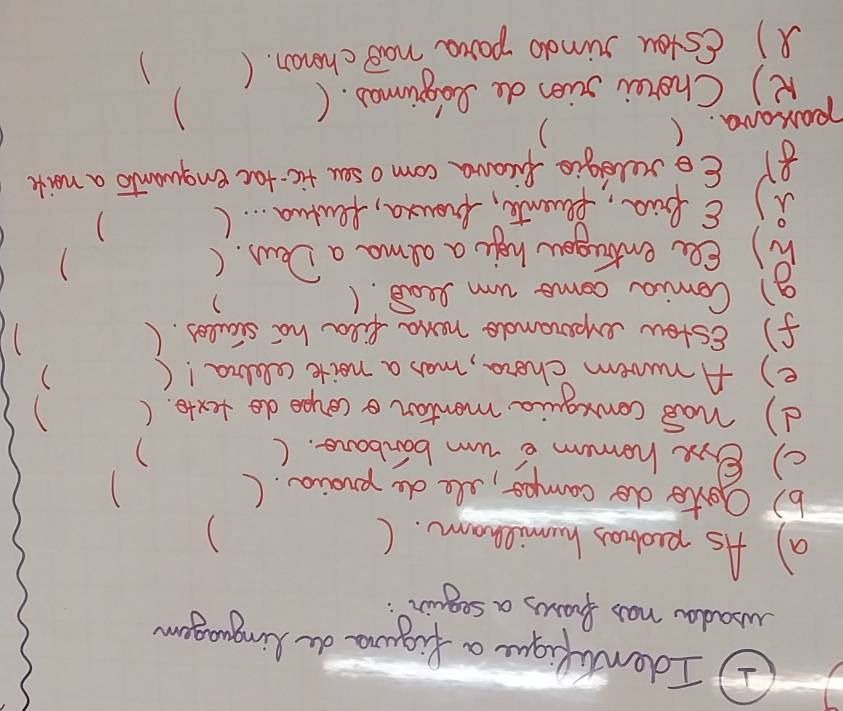 1 Identifique a figura de linguagem
usadas nas frases a seguir:
a) As pedras humilham. ( )
b) Gosto do campo, ele de praia. ( )
c) Esse homem é um bárbaro. ( )
d) não conseguia montar o corpo do texto. ( )
e) A nuvem chora, mas a noite celebra! ( )
f) Estou esperando nessa fila há séculos. ( )
g) Comia como um leão. ( )
h) Ele entregou hoje a alma a Deus. ( )
i) E fria, fluente, frouxa, flutua... ( )
j) E o relógio ficava com o seu tic-tac enquanto a noite
passava. ( )
k) Chorei rios de lágrimas. ( )
l) Estou rindo para não chorar. ( )